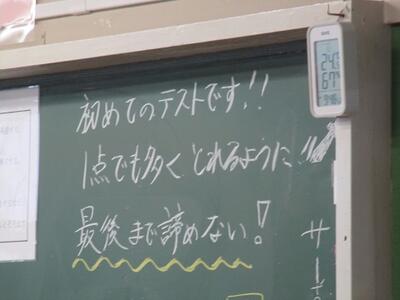 初めてのテストです!!
1点でも多くとれるように!!
最後まで諦めない!
サー
24.5
67%